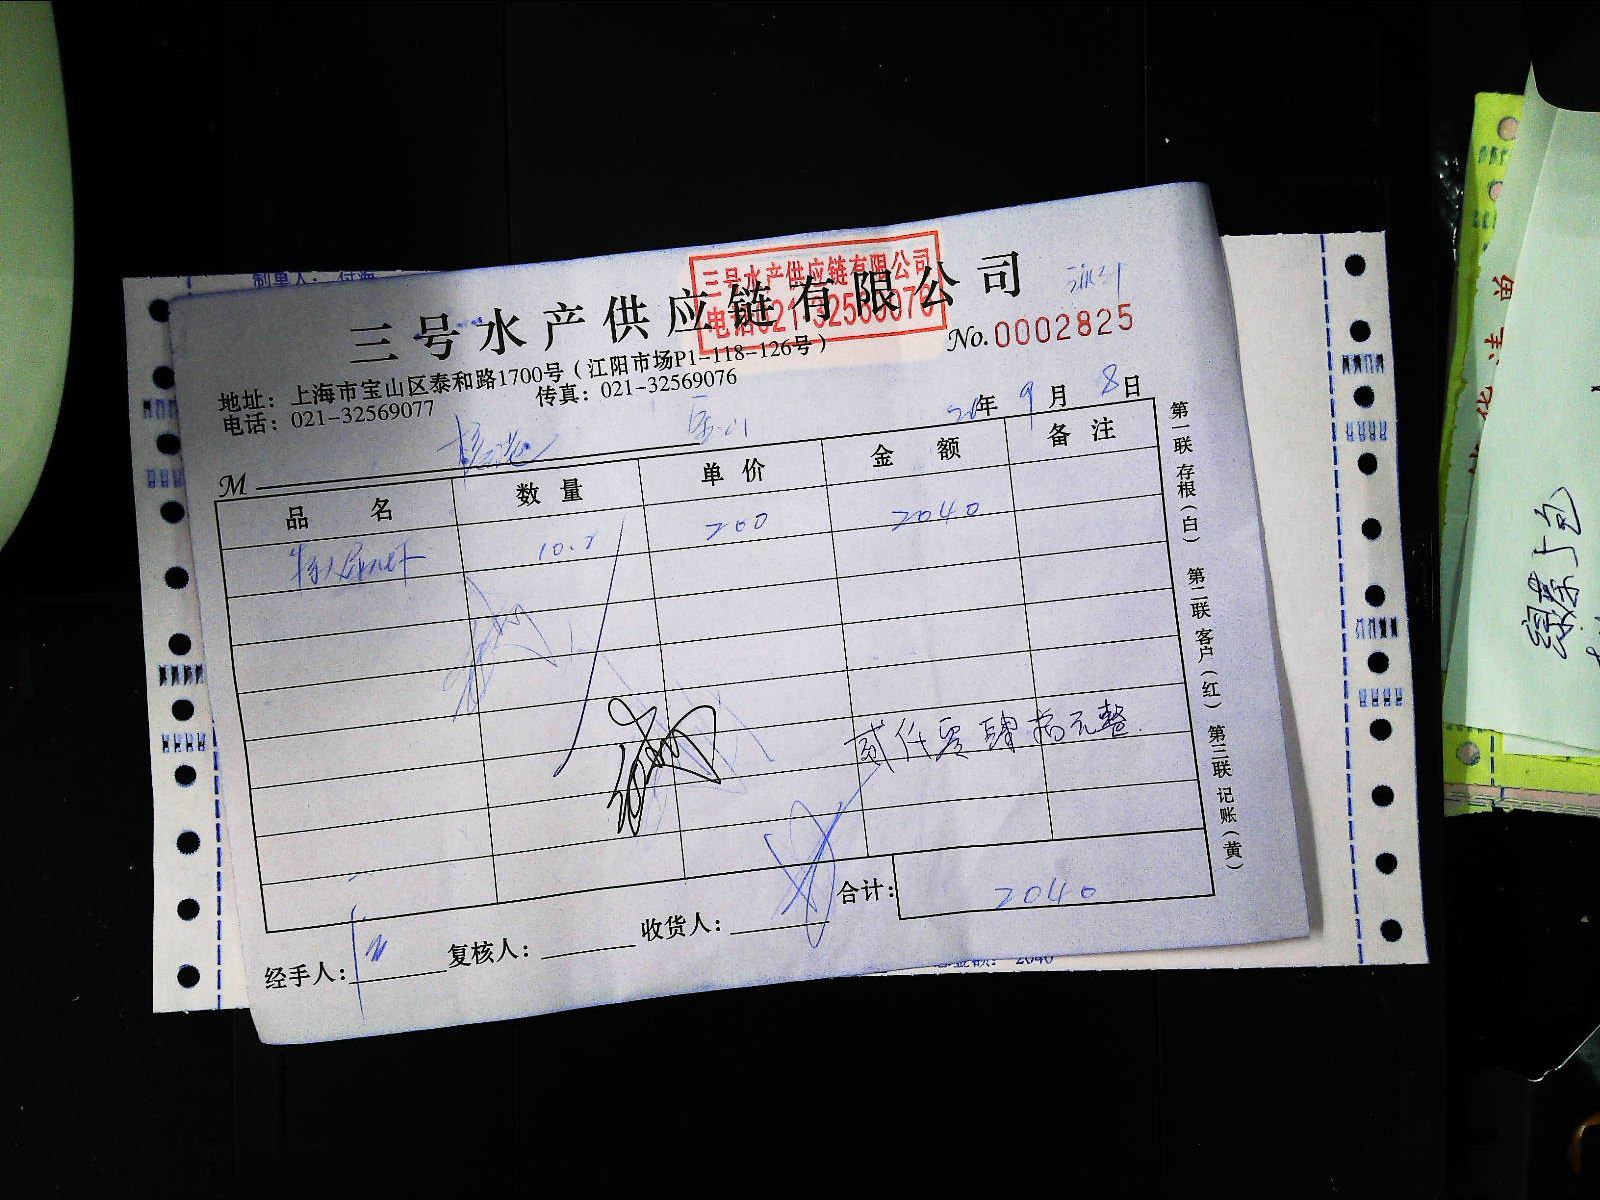 制单人：付海
三号水产供应链有限公司
电话021-32569076
三号水产供应链有限公司
No.0002825
地址：上海市宝山区泰和路1700号（江阳市场P1-118-126号）
电话：021-32569077 传真：021-32569076
年 9月 8日
M
品名 数量 单价 金额 备注
10.2 200 2040
贰仟零肆拾元整.
合计：2040
经手人： 复核人： 收货人：
2040
第一联 存根（白） 第二联 客户（红） 第三联 记账（黄）
绿茶5包